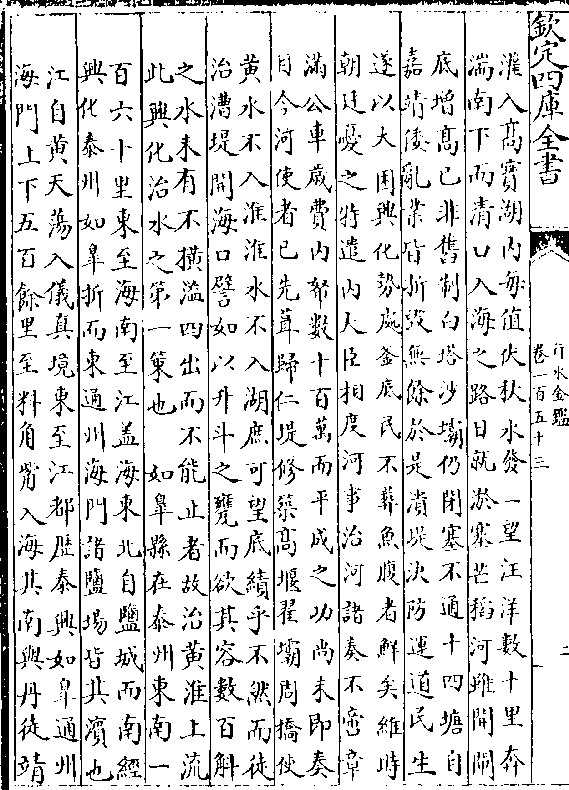 欽定四庫全書
行水金鑑
卷一百五十三
二
灌入高寶湖内每值伏秋水發一望汪洋數十里奔
湍南下而清口入海之路日就淤塞芒稻河雖開閘
底增高已非舊制白塔沙壩仍閉塞不通十四塘自
嘉靖倭亂業皆折毀無餘於是潰堤決防運道民生
遂以大困興化勢處釜底民不葬魚腹者鮮矣維時
朝廷憂之特遣内大臣相度河事治河諸奏不啻章
滿公車歲費内帑數十百萬而平成之功尚未即奏
目今河使者已先葺歸仁堤修築高堰翟壩周橋使
黄水不入淮淮水不入湖庶可望底績乎不然而徒
治漕堤開海口譬如以升斗之甕而欲其容數百斛
之水未有不横溢四出而不能止者故治黄淮上流
此興化治水之第一策也 如臯縣在泰州東南一
百六十里東至海南至江盖海東北自鹽城而南經
興化泰州如臯折而東通州海門諸鹽場皆其濱也
江自黄天蕩入儀真境東至江都歷泰興如臯通州
海門上下五百餘里至料角觜入海其南與丹徒靖